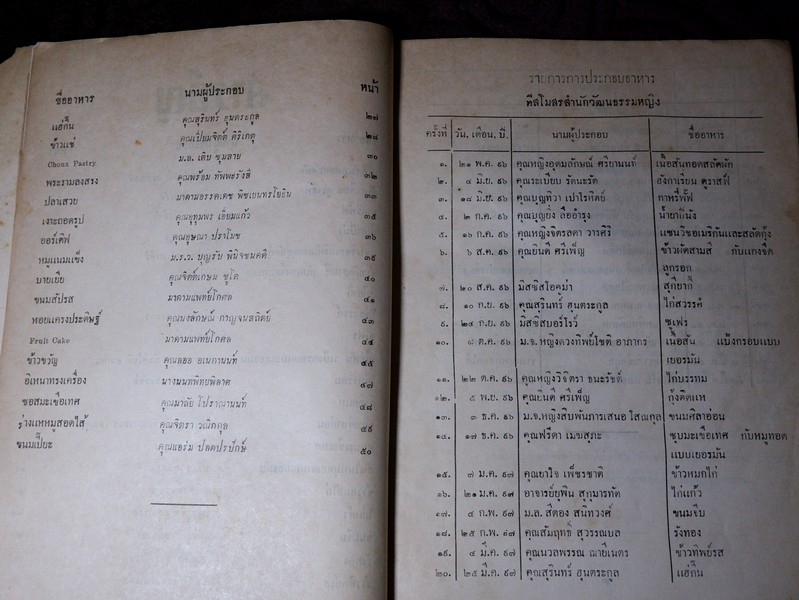 ชื่ออาหาร นามผู้ประกอบ หน้า
แฮ่กึ๊น คุณสุรินทร์ ฮุนตระกูล ๒๗
ข้าวแช่ คุณเปี่ยมจิตต์ ศิริเกตุ ๒๘
Choux Pastry ม.ล. เติบ ชุมสาย ๓๐
พระรามลงสรง คุณพร้อม ทัพพะรังสี ๓๒
ปลาแสวย มาดามอรรคเดช พิชเยนทรโยธิน ๓๓
เงาะถอดรูป คุณอุทุมพร เอี่ยมแก้ว ๓๕
ออร์เดิฟ คุณอุษณา ปราโมช ๓๖
หมูแนมแข็ง ม.ร.ว. บุญรับ พินิจชนคดี ๓๙
บายเยีย คุณจิตต์เกษม ชูโต ๔๐
ขนมสัปรส มาดามแพทย์โกศล ๔๑
หอยแครงประดิษฐ์ คุณนงลักษณ์ กาญจนสถิตย์ ๔๓
Fruit Cake มาดามแพทย์โกศล ๔๔
ข้าวขวัญ คุณลออ อเนกานนท์ ๔๕
อิเหนาทรงเครื่อง นางนนทพิทยพิลาศ ๔๗
ซอสมะเขือเทศ คุณมาลัย โปราณานนท์ ๔๘
ร่างแหหมูสอดไส้ คุณจิตรา วณิกกุล ๔๙
ขนมเปี๊ยะ คุณแอร่ม ปลอดปรปักษ์ ๕๐
รายการการประกอบอาหาร
ที่สโมสรสำนักวัฒนธรรมหญิง
ครั้งที่ วัน, เดือน, ปี. นามผู้ประกอบ ชื่ออาหาร
๑. ๒๑ พ.ค. ๙๖ คุณหญิงอุดมลักษณ์ ศรียานนท์ เนื้อสันทอดสลัดผัก
๒. ๔ มิ.ย. ๙๖ คุณระเบียบ รัตนะรัต ฮังกาเรียน คูราสฟ์
๓. ๑๘ มิ.ย. ๙๖ คุณบุญทิวา เปาโรหิตย์ ทาหรี่พั๊ฟ
๔. ๒ ก.ค. ๙๖ คุณบุญยิ่ง ลืออำรุง น้ำยากีนัง
๕. ๑๖ ก.ค. ๙๖ คุณหญิงจิตรลดา วารศิริ แซนวิชอเมริกันและสลัดกุ้ง
๖. ๖ ส.ค. ๙๖ คุณยินดี ศรีเพ็ญ ข้าวผัดสามสี กับแกงจืด
ลูกรอก
๗. ๒๐ ส.ค. ๙๖ มิสซิสโอคุม่า สุกียากี้
๘. ๑๐ ก.ย. ๙๖ คุณสุรินทร์ ฮุนตระกูล ไก่สวรรค์
๙. ๒๔ ก.ย. ๙๖ มิสซิสบอร์ไรว์ ซูเฟร่
๑๐. ๘ ต.ค. ๙๖ ม.จ. หญิงดวงทิพย์โชติ อาภากร เนื้อสัน แป้งกรอบแบบ
เยอรมัน
๑๑. ๒๒ ต.ค. ๙๖ คุณหญิงวิจิตรา ธนะรัชต์ ไก่บรรทม
๑๒. ๕ พ.ย. ๙๖ คุณยินดี ศรีเพ็ญ กุ้งคิดแห
๑๓. ๓ ธ.ค. ๙๖ ม.จ.หญิงสืบพันการเสนอ โสณกุล ขนมศิลาอ่อน
๑๔. ๑๗ ธ.ค. ๙๖ คุณฟรีดา เมฆสุภะ ซุบมะเขือเทศ กับหมูทอด
แบบเยอรมัน
๑๕. ๗ ม.ค. ๙๗ คุณยาใจ เพ็ชรชาติ ข้าวหมกไก่
๑๖. ๒๑ ม.ค. ๙๗ อาจารย์ยุพิน สุกุมารทัต ไก่แก้ว
๑๗. ๔ ก.พ. ๙๗ ม.ล. สีตอง สนิทวงศ์ ขนมจีบ
๑๘. ๒๕ ก.พ. ๙๗ คุณสัมฤทธิ์ สุวรรณบล รังทอง
๑๙. ๔ มี.ค. ๙๗ คุณนวลพรรณ ฌายีเนตร ข้าวทิพย์รส
๒๐. ๒๕ มี.ค. ๙๗ คุณสุรินทร์ ฮุนตระกูล แฮ่กึ๊น